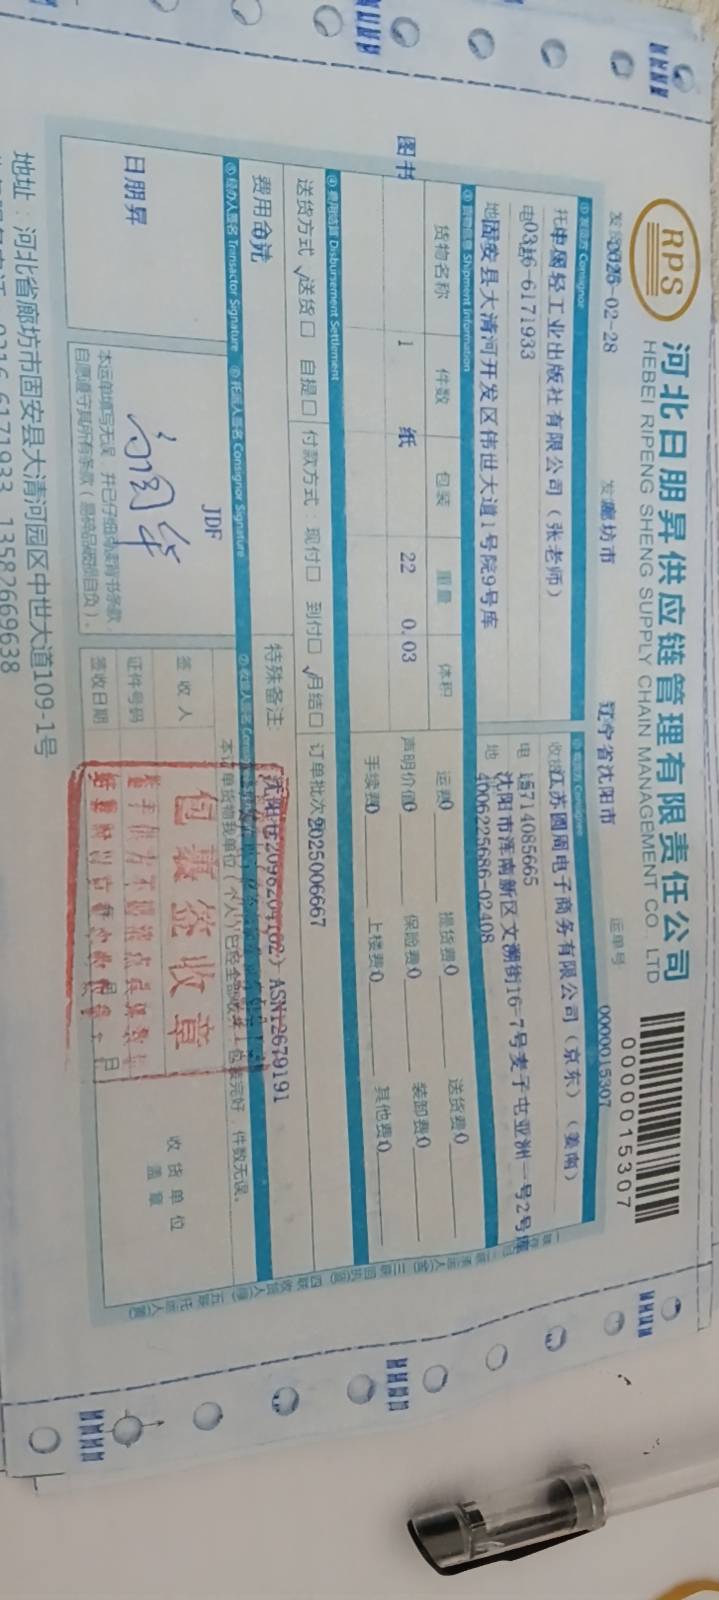 RPS
河北日朋昇供应链管理有限责任公司
HEBEI RIPENG SHENG SUPPLY CHAIN MANAGEMENT CO. LTD
0000015307
2025-02-28
廊坊市
辽宁省沈阳市
运单号
0000015307
① 发货方 Consignor
中国轻工业出版社有限公司（张老师）
0316-6171933
固安县大清河开发区伟世大道1号院9号库
江苏圆周电子商务有限公司（京东）（姜南）
15714085665
沈阳市浑南新区文溯街16-7号麦子屯亚洲一号2号库
4006225686-02408
③ 货物信息 Shipment Information
货物名称 件数 包装 重量 体积
图书 1 纸 22 0.03
运费0 提货费0 送货费0
声明价值0 保险费0 装卸费0
手续费0 上楼费0 其他费0
④ 费用结算 Disbursement Settlement
送货方式 √送货□ 自提□
付款方式：现付□ 到付□ √月结□
订单批次 2025006667
费用合计
特殊备注：
ASN12679191
⑤ 经办人签名 Transactor Signature
⑥ 托运人签名 Consignor Signature
日朋昇
JDF
本运单填写无误，并已仔细阅读背书条款
自愿遵守其所有条款（易碎品破损自负）。
包装完好，件数无误。
签收人
证件号码
签收日期
收货单位
盖章
包裹签收章
日
地址：河北省廊坊市固安县大清河园区中世大道109-1号
0316-6171933 13582669638